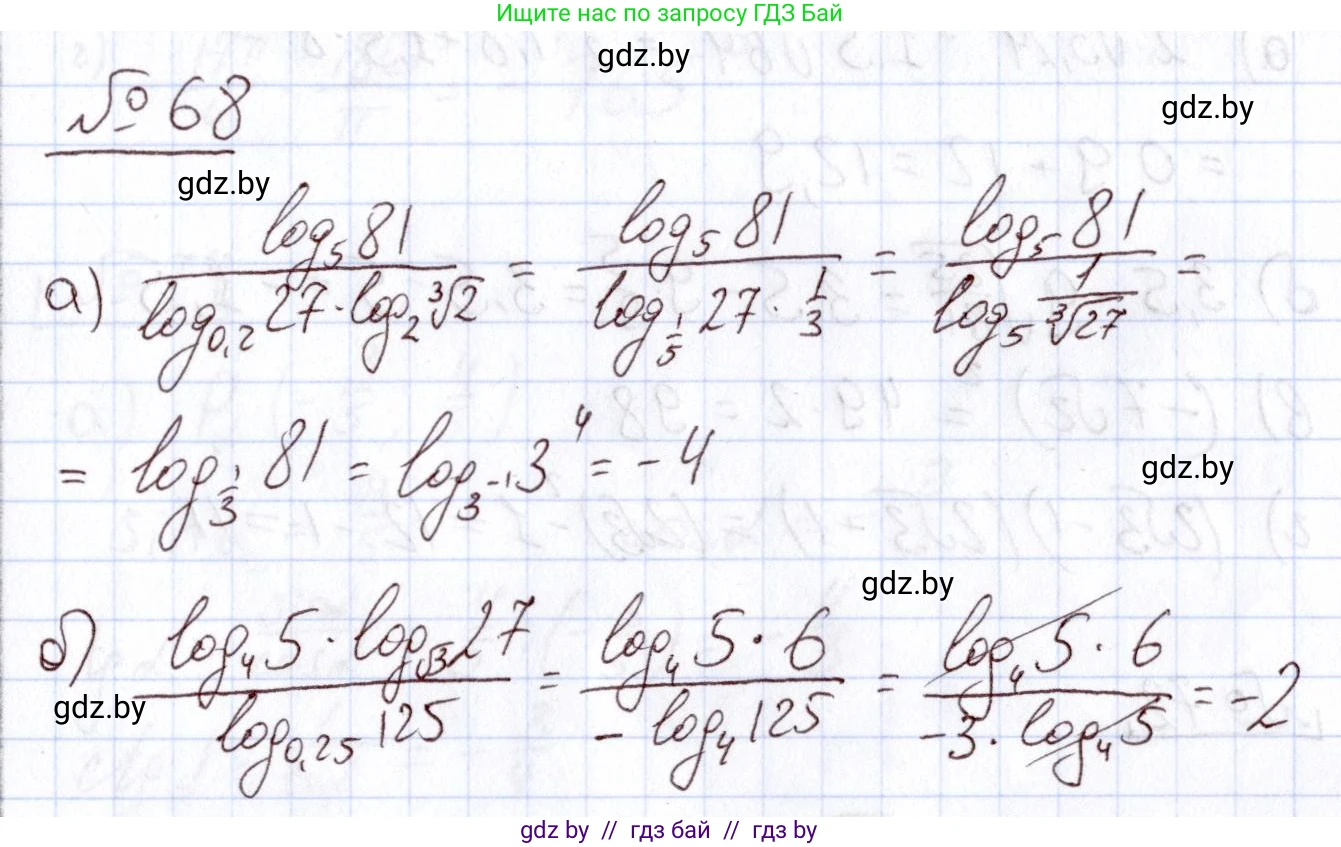 Ищите нас по запросу ГДЗ Бай
gdz.by
№ 68
gdz.by
gdz.by
а) log₅ 81 / (log₀,₂ 27 · log₂ ∛2) = log₅ 81 / (log_{1/5} 27 · 1/3) = log₅ 81 / (log₅ 1/∛27) =
= log_{1/3} 81 = log_{3⁻¹} 3⁴ = -4
gdz.by
gdz.by
б) (log₄ 5 · log_{√3} 27) / log₀,₂₅ 125 = (log₄ 5 · 6) / (- log₄ 125) = (log₄ 5 · 6) / (-3 · log₄ 5) = -2
gdz.by
gdz by // гдз бай // гдз by